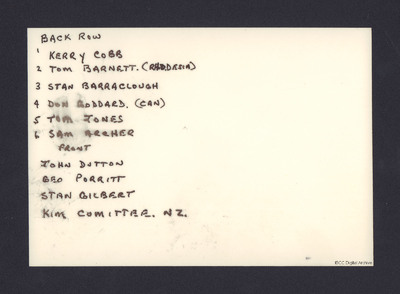 BACK ROW
1 KERRY COBB
2 TOM BARNETT. (RHODESIA)
3 STAN BARRACLOUGH
4 DON GODDARD. (CAN)
5 TOM JONES
6 SAM ARCHER
FRONT
JOHN DUTTON
GEO PORRITT
STAN GILBERT
KIM COMITTEE. NZ.
IBCC Digital Archive